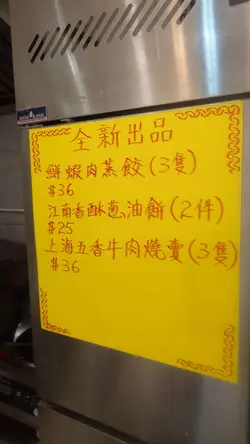 全新出品
鮮蝦肉蒸餃(3隻)
#36
江南香酥蔥油餅(2件)
#25
上海五香牛肉燒賣(3隻)
#36